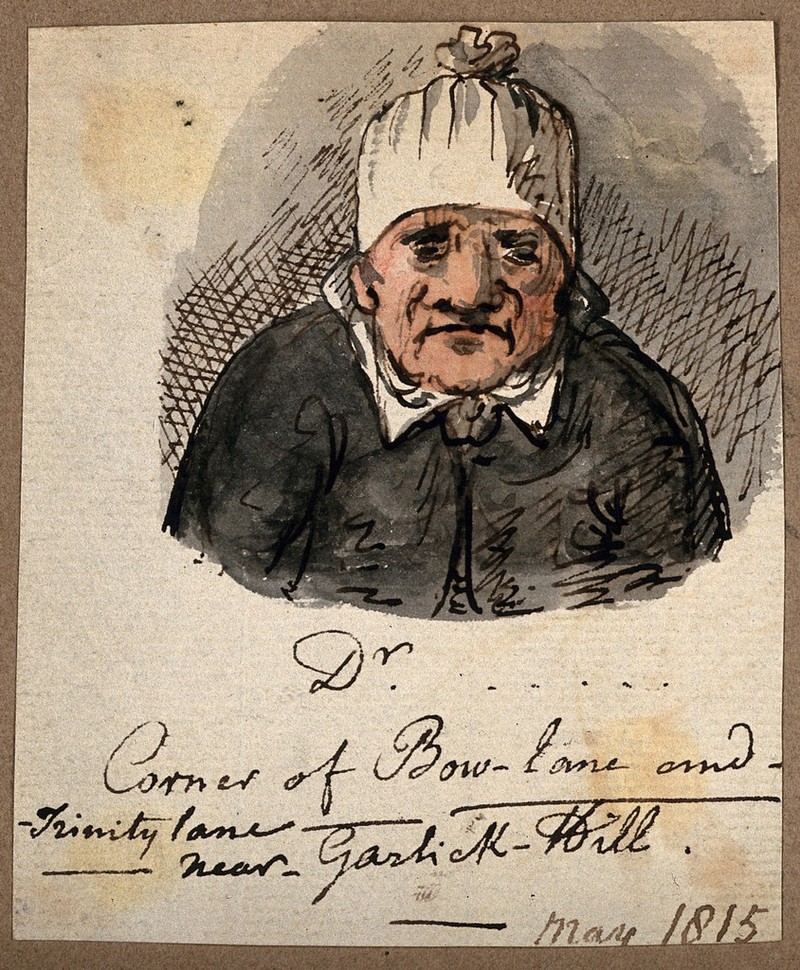 Dr. . . . . . .
Corner of Bow-lane and-
-Trinity lane
near- Garlick-Hill.
May 1815